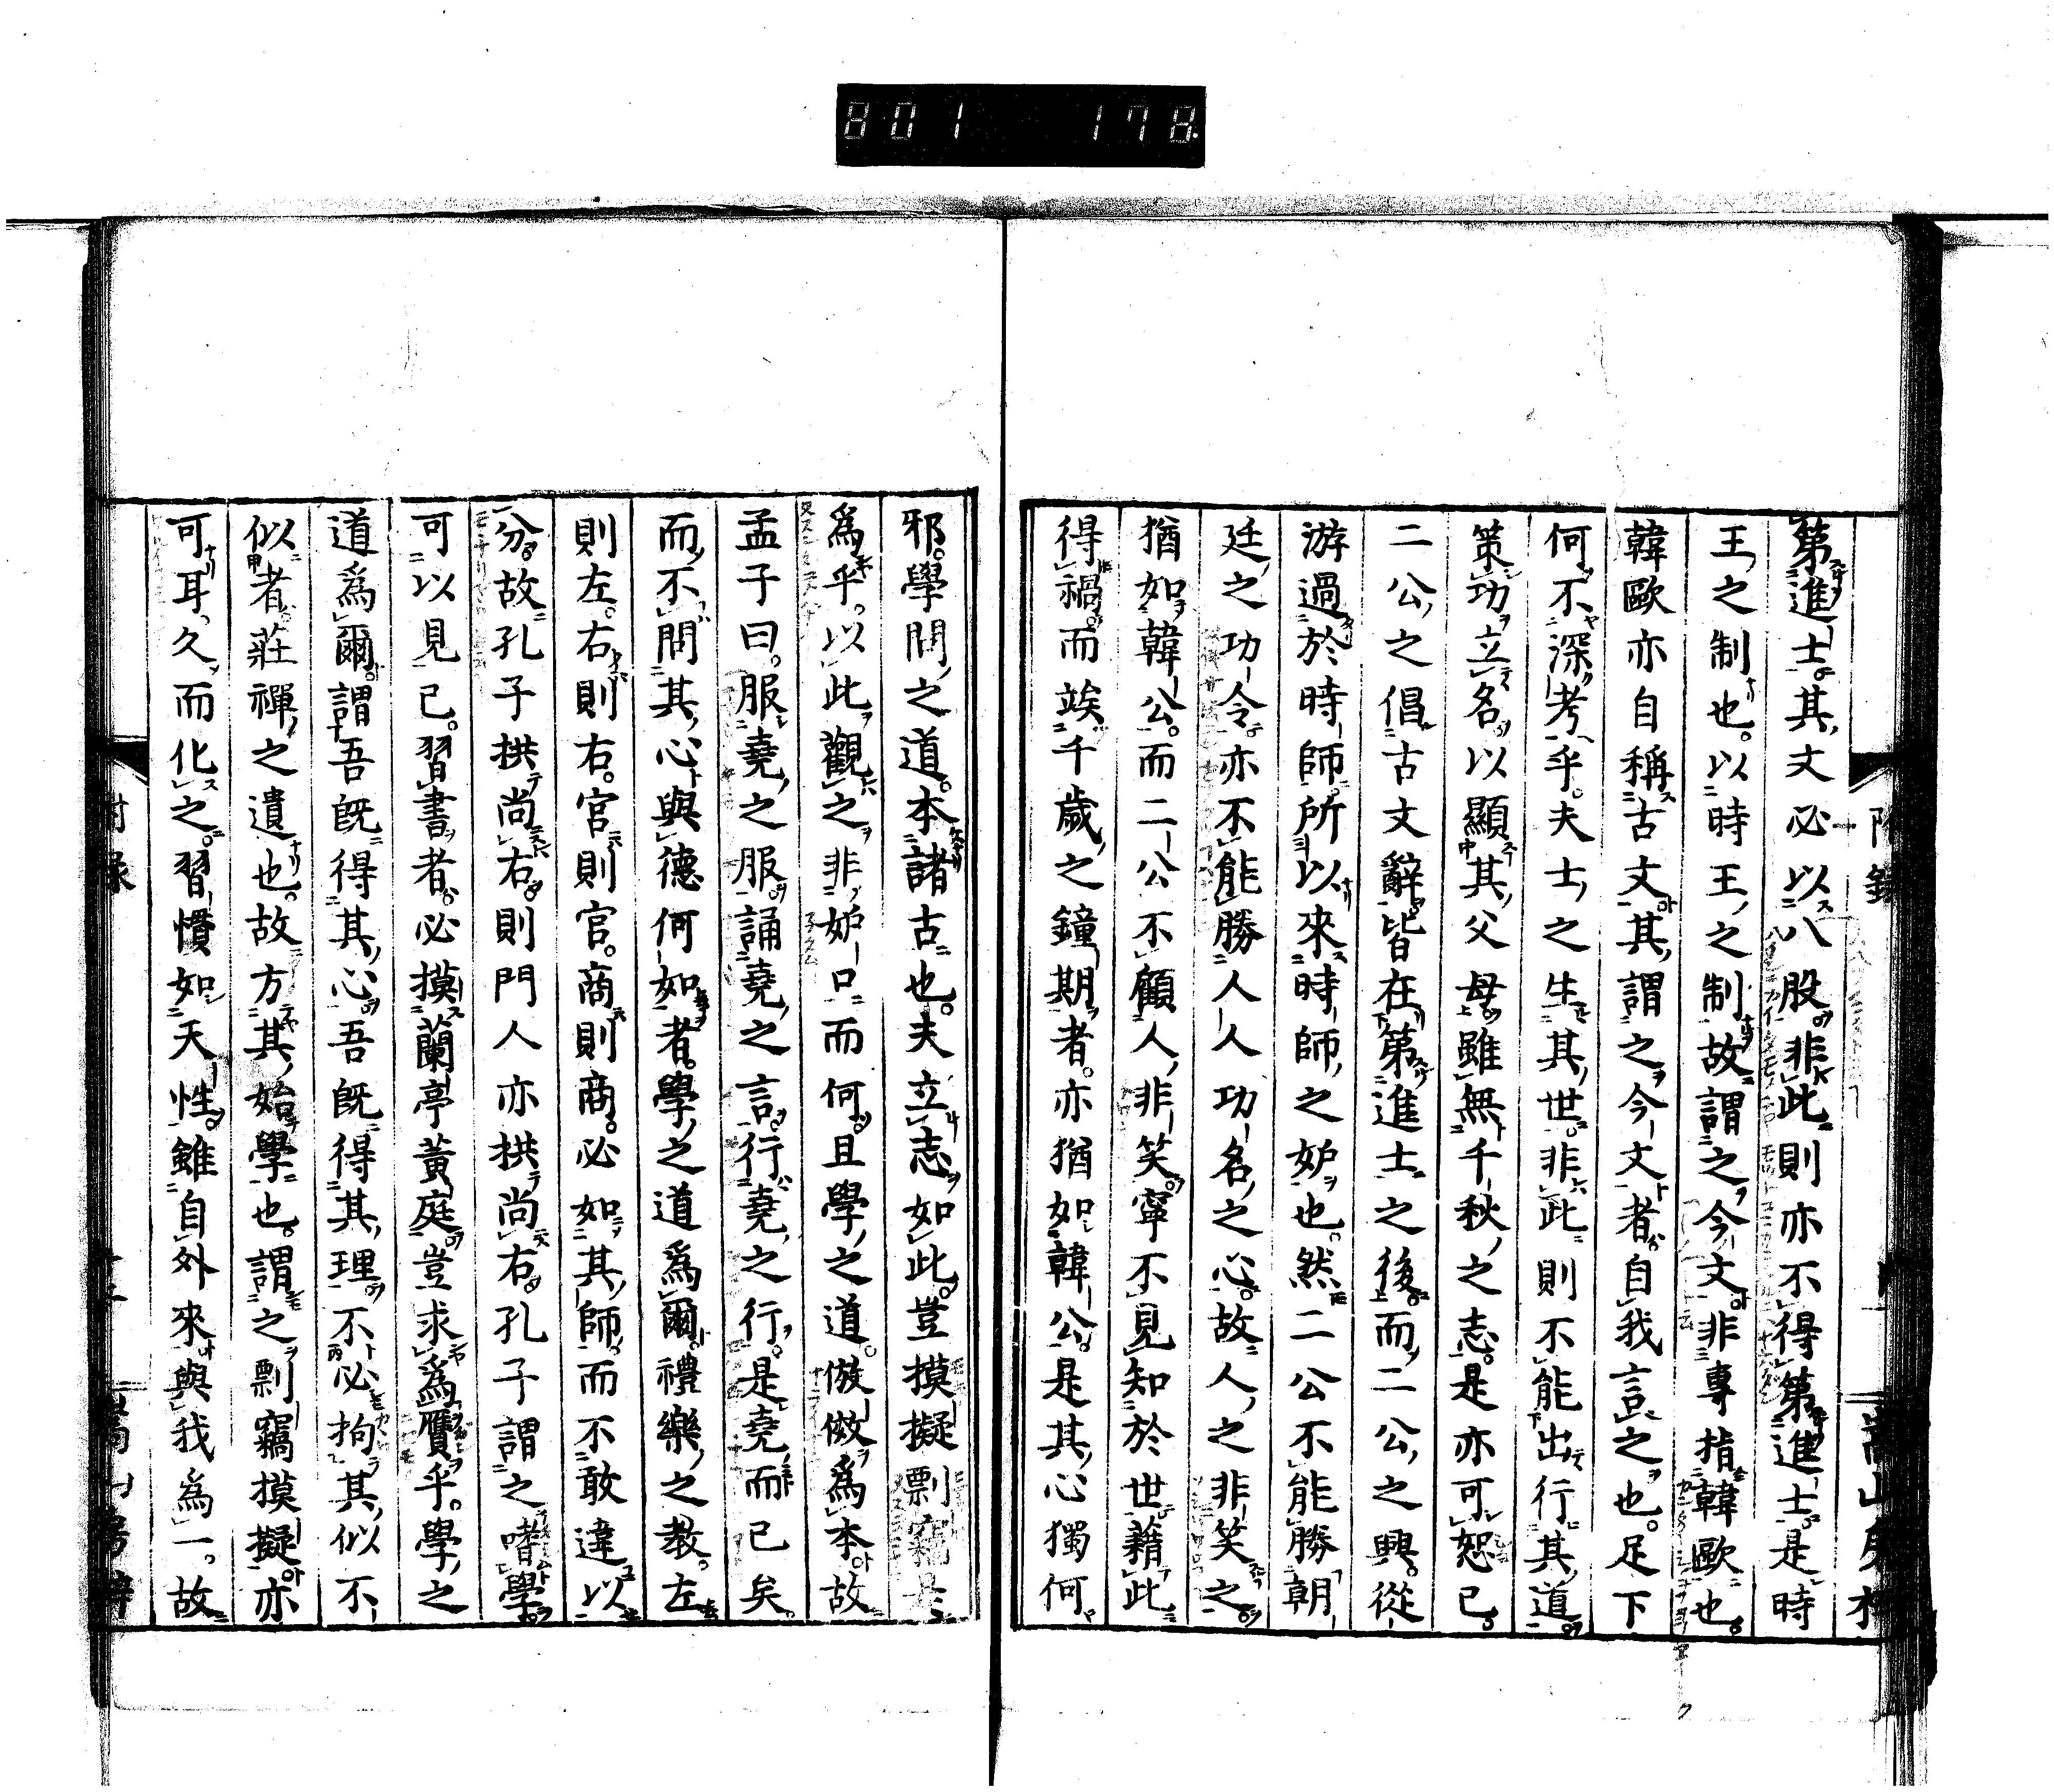 801 178
第進士。其文必以八股。非此則亦不得第進士。是時
王之制也。以時王之制。故謂之今文。非專指韓歐也。
韓歐亦自稱古文。其謂之今文者。自我言之也。足下
何不深考乎。夫士之生其世。非此則不能出行其道。
策功立名。以顯其父母。雖無千秋之志。是亦可恕已。
二公之倡古文辭。皆在第進士之後。而二公之興。從
游過於時師。所以來時師之妒也。然二公不能勝朝
廷之功令。亦不能勝人人功名之心。故人之非笑之。
猶如韓公。而二公不顧人非笑。寧不見知於世。藉此
得禍。而竢千歲之鐘期者。亦猶如韓公。是其心獨何
邪。學問之道。本諸古也。夫立志如此。豈摸擬剽竊
爲乎。以此觀之。非妒口而何。且學之道。倣傚爲本。故
孟子曰。服堯之服。誦堯之言。行堯之行。是堯而已矣。
而不問其心與德何如者。學之道爲爾。禮樂之教。左
則左。右則右。宮則宮。商則商。必如其師。而不敢違以
分。故孔子拱尚右。則門人亦拱尚右。孔子謂之嗜學。
可以見已。習書者。必摸蘭亭黃庭。豈求爲贋乎。學之
道爲爾。謂吾既得其心。吾既得其理。不必拘其似不
似者。莊禪之遺也。故方其始學也。謂之剽竊摸擬。亦
可耳。久而化之。習慣如天性。雖自外來。與我爲一。故